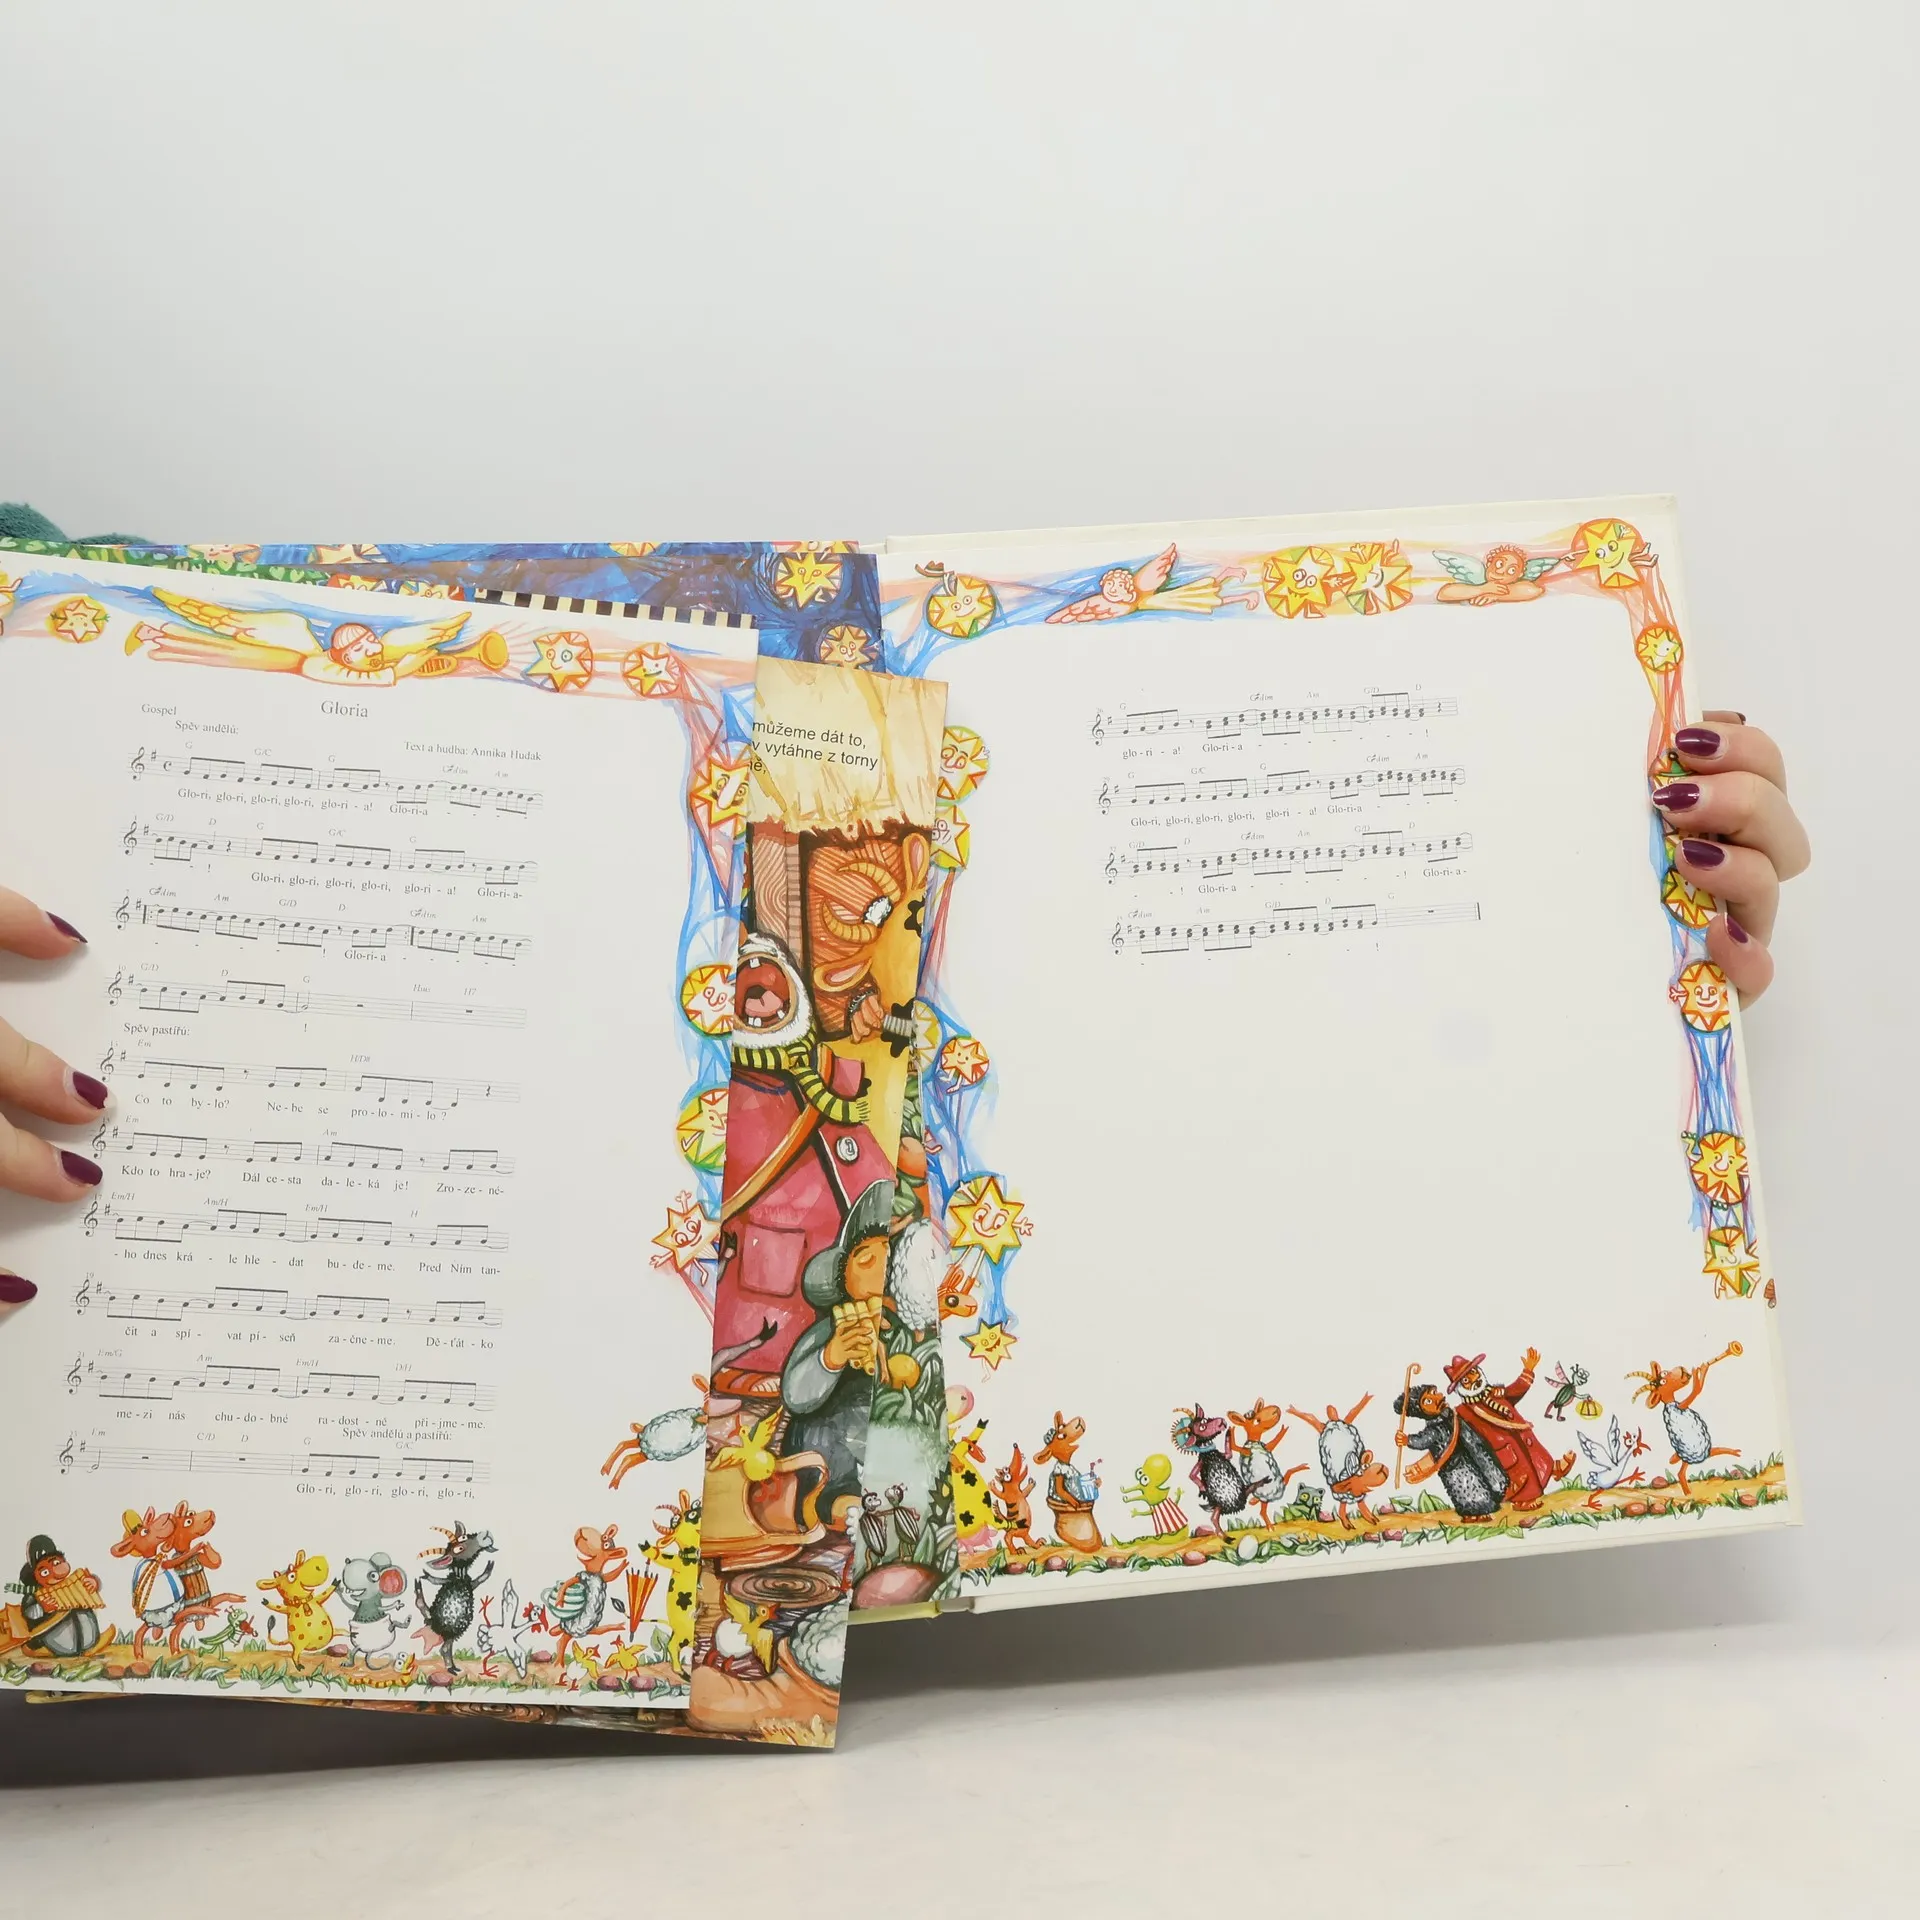 Gospel
Gloria
Spěv andělů:
Text a hudba: Annika Hudak
G G/C G C♯dim Am
Glo-ri, glo-ri, glo-ri, glo-ri, glo-ri - a! Glo-ri-a - - -
G/D D G G/C G
- - ! Glo-ri, glo-ri, glo-ri, glo-ri, glo-ri - a! Glo-ri-a-
C♯dim Am G/D D C♯dim Am
- - - - ! Glo-ri-a - - - -
10 G/D D G Hm6 H7
!
Spěv pastířů:
Em H/D♯
Co to by - lo? Ne - be se pro - lo - mi - lo ?
Em Am
Kdo to hra - je? Dál ce - sta da - le - ká je! Zro - ze - né-
17 Em/H Am/H Em/H H
- ho dnes krá - le hle - dat bu - de - me. Pred Ním tan-
19
čit a spí - vat pí - seň za - čne - me. Dě - ťát - ko
21 Em/G Am Em/H D/H
me - zi nás chu - do - bné ra - dost - ně při - jme - me.
Spěv andělů a pastířů:
Em C/D D G G/C
Glo - ri, glo - ri, glo - ri, glo - ri,
můžeme dát to,
v vytáhne z torny
ně,
G C♯dim Am G/D D
glo - ri - a! Glo-ri-a - - - - !
G G/C G C♯dim Am
Glo-ri, glo-ri, glo-ri, glo-ri, glo-ri - a! Glo-ri-a - - -
G/D D C♯dim Am G/D D
- - ! Glo-ri-a - - - - ! Glo-ri-a -
C♯dim Am G/D D G
- - - - !